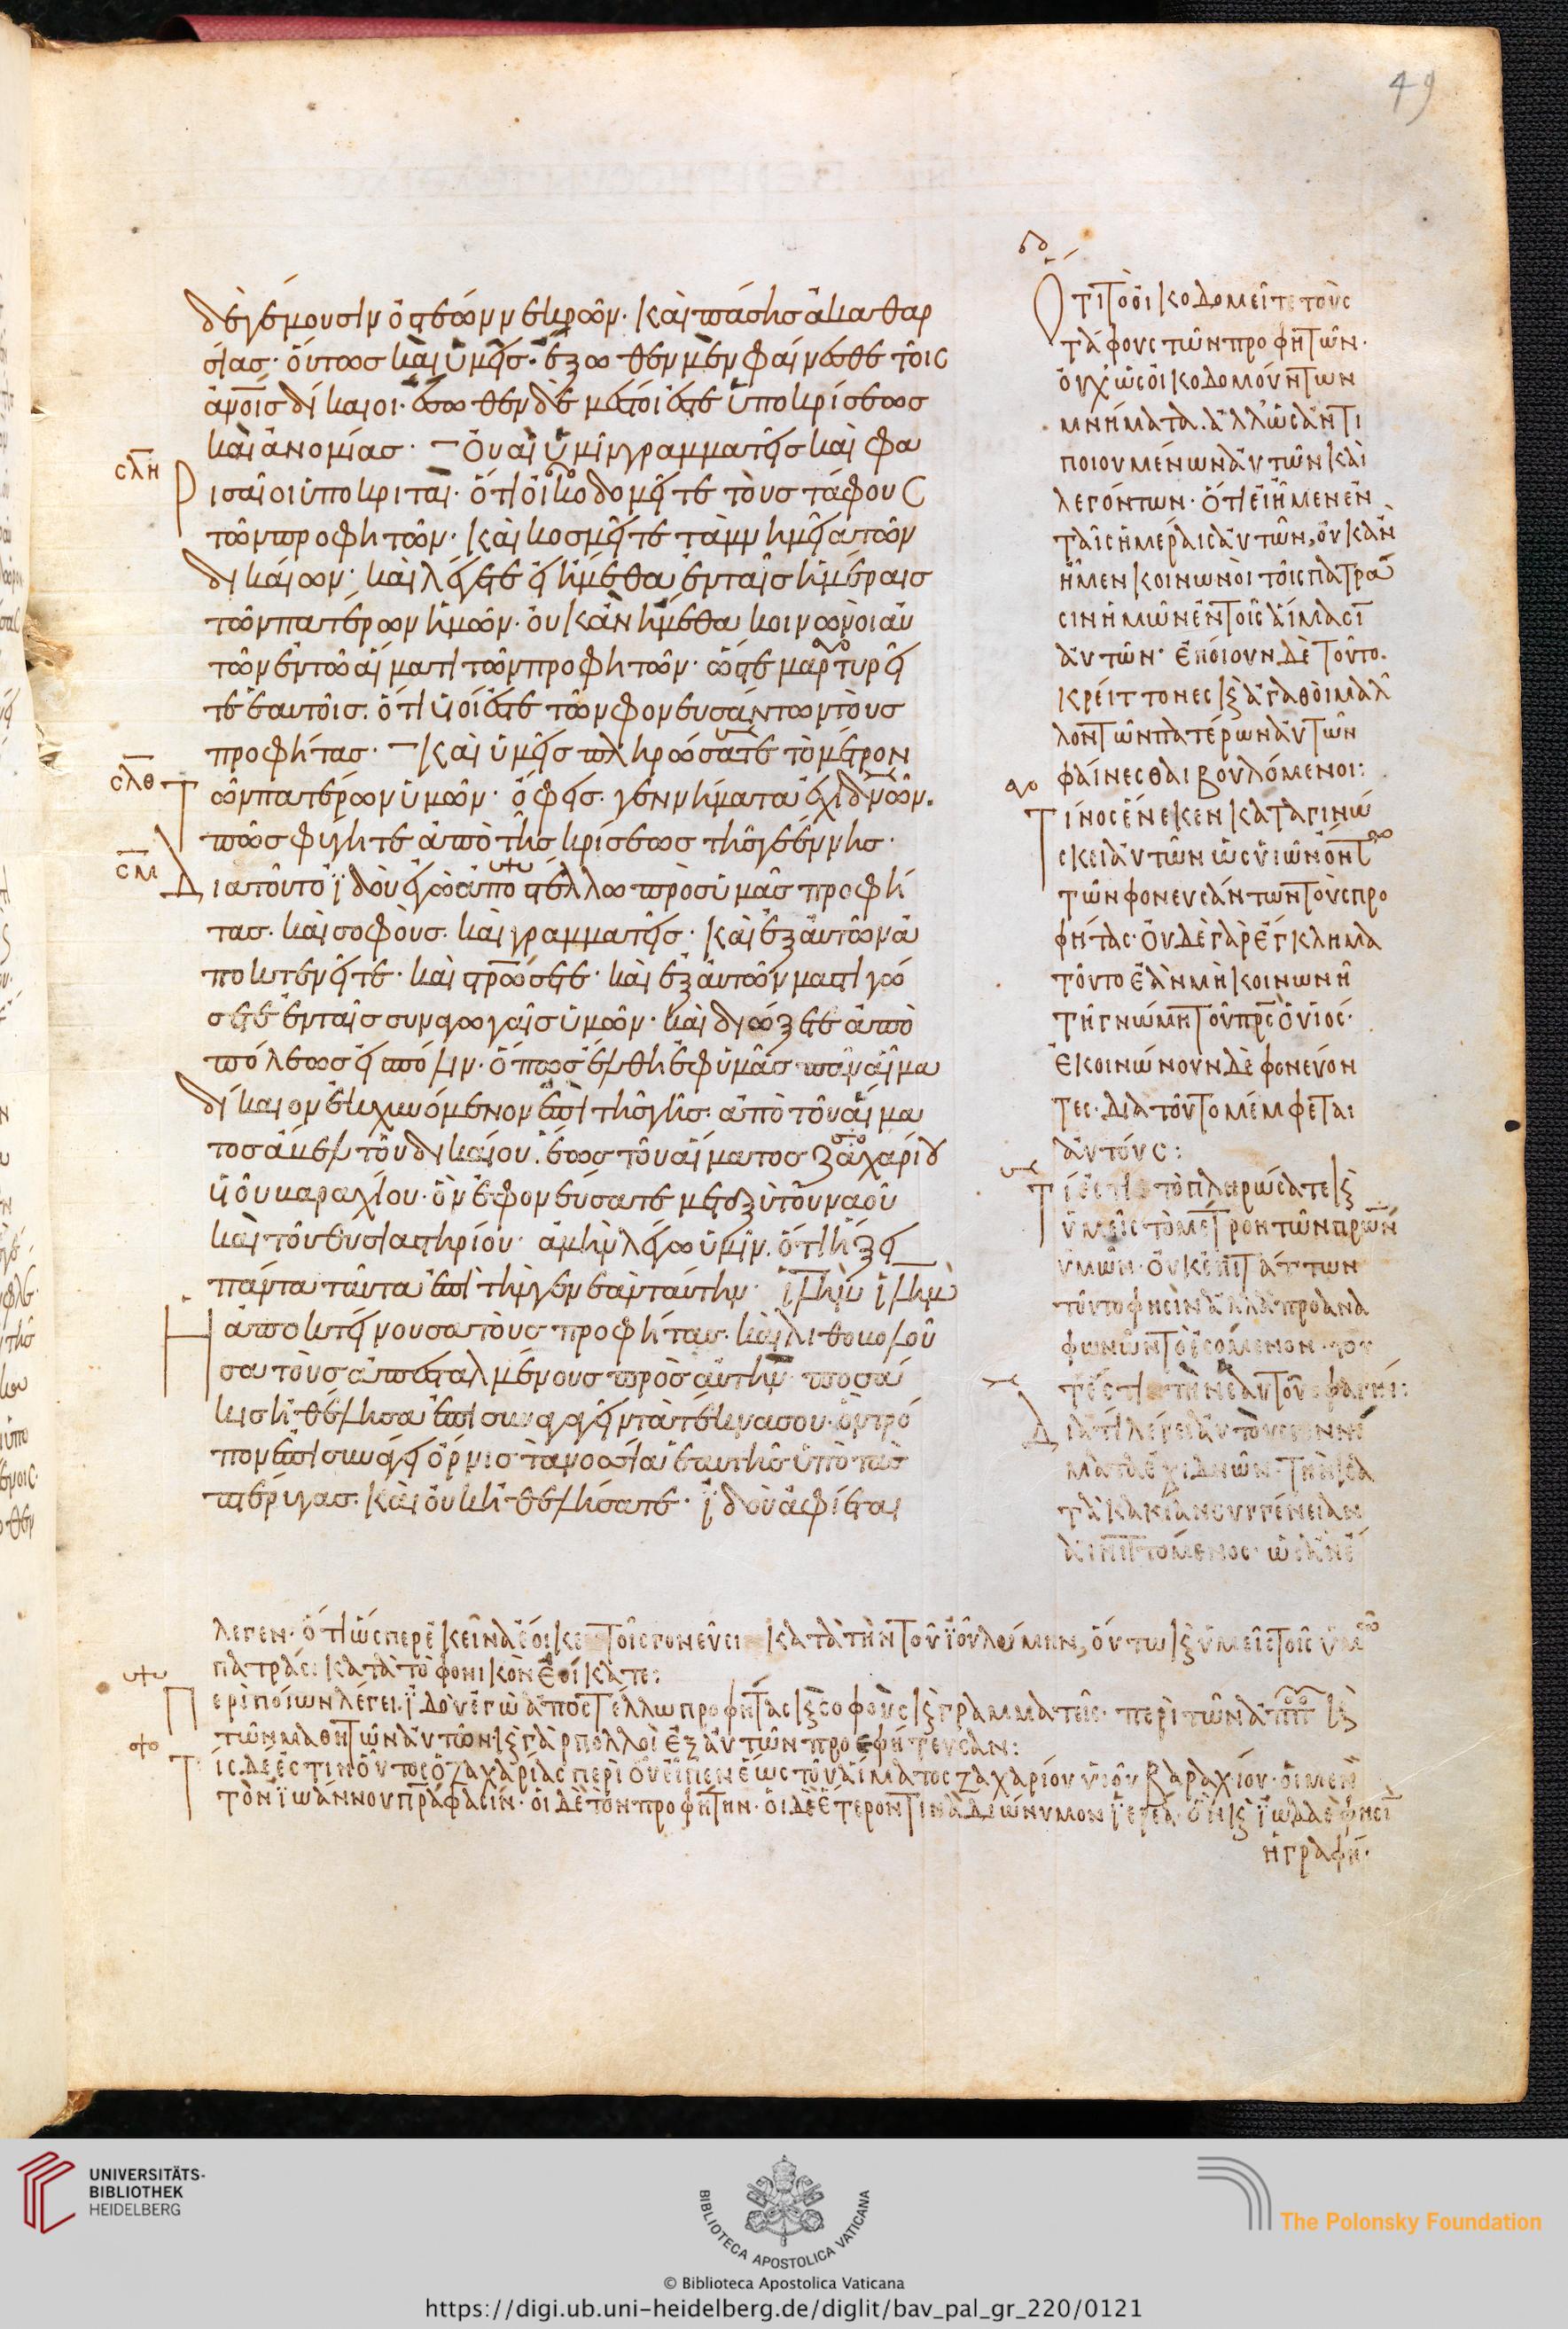 49
δὲ γέμουσιν ὀστέων νεκρῶν· καὶ πάσης ἀκαθαρ
σίας· οὕτως καὶ ὑμεῖς· ἔξωθεν μὲν φαίνεσθε τοῖς
ἀνοις δίκαιοι· ἔσωθεν δὲ μεστοί ἐστε ὑποκρίσεως
καὶ ἀνομίας· Οὐαὶ ὑμῖν γραμματεῖς καὶ φα
σλη ρισαῖοι ὑποκριταί· ὅτι οἰκοδομεῖτε τοὺς τάφους
τῶν προφητῶν· καὶ κοσμεῖτε τὰ μνημεῖα τῶν
δικαίων· καὶ λέγετε εἰ ἤμεθα ἐν ταῖς ἡμέραις
τῶν πατέρων ἡμῶν· οὐκ ἂν ἤμεθα κοινωνοὶ αὐ
τῶν ἐν τῶ αἵματι τῶν προφητῶν· ὥστε μαρτυρεῖ
τε ἑαυτοῖς· ὅτι υἱοί ἐστε τῶν φονευσάντων τοὺς
προφήτας· Καὶ ὑμεῖς πληρώσατε τὸ μέτρον
σλθ τῶν πατέρων ὑμῶν· ὄφεις· γεννήματα ἐχιδνῶν·
πῶς φύγητε ἀπὸ τῆς κρίσεως τῆς γεέννης·
σμ Διὰ τοῦτο ἰδοὺ ἐγὼ ἀποστέλλω πρὸς ὑμᾶς προφή
τας· καὶ σοφοὺς· καὶ γραμματεῖς· καὶ ἐξ αὐτῶν ἀ
ποκτενεῖτε· καὶ σταυρώσετε· καὶ ἐξ αὐτῶν μαστιγώ
σετε ἐν ταῖς συναγωγαῖς ὑμῶν· καὶ διώξετε ἀπὸ
πόλεως εἰς πόλιν· ὅπως ἔλθη ἐφ ὑμᾶς πᾶν αἷμα
δίκαιον ἐκχυνόμενον ἐπὶ τῆς γῆς· ἀπὸ τοῦ αἵμα
τος ἄβελ τοῦ δικαίου· ἕως τοῦ αἵματος ζαχαρίου
υἱοῦ βαραχίου· ὃν ἐφονεύσατε μεταξὺ τοῦ ναοῦ
καὶ τοῦ θυσιαστηρίου· ἀμὴν λέγω ὑμῖν· ὅτι ἥξει
πάντα ταῦτα ἐπὶ τὴν γενεὰν ταύτην· ἰλημ ἰλημ
Η ἀποκτείνουσα τοὺς προφήτας· καὶ λιθοβολοῦ
σα τοὺς ἀπεσταλμένους πρὸς αὐτήν· ποσά
κις ἠθέλησα ἐπισυναγαγεῖν τὰ τέκνα σου· ὃν τρό
πον ἐπισυνάγει ὄρνις τὰ νοσσία ἑαυτῆς ὑπὸ τὰς
πτέρυγας· καὶ οὐκ ἠθελήσατε· ἰδοὺ ἀφίεται
Ὅτι τὸ οἰκοδομεῖτε τοὺς
τάφους τῶν προφητῶν·
οὐχ ὡς οἰκοδομούντων
μνήματα· ἀλλ ὡς ἀντι
ποιουμένων αὐτῶν καὶ
λεγόντων· ὅτι εἰ ἦμεν ἐν
ταῖς ἡμέραις αὐτῶν, οὐκ ἂν
ἦμεν κοινωνοὶ τοῖς πατρά
σιν ἡμῶν ἐν τοῖς αἵμασι
αὐτῶν· ἐποίουν δὲ τοῦτο·
κρείττονες κ ἀγαθοὶ μᾶλ
λον τῶν πατέρων αὐτῶν
φαίνεσθαι βουλόμενοι:
Τίνος ἕνεκεν καταγινώ
σκει αὐτῶν ὡς υἱῶν ὄντ
τῶν φονευσάντων τοὺς προ
φήτας· οὐδὲ γὰρ ἔγκλημα
τοῦτο ἐὰν μὴ κοινωνῆ
τῆ γνώμη τοῦ πρς ὁ υἱός·
ἐκοινώνουν δὲ φονεύον
τες· διὰ τοῦτο μέμφεται
αὐτούς:
Τί ἐστι τὸ πληρώσατε κ
ὑμεῖς τὸ μέτρον τῶν πρων
ὑμῶν· οὐκ ἐπιτάττων
τοῦτο φησὶν ἀλλὰ προανα
φωνῶν τὸ ἐσόμενον
Διατί λέγει αὐτοὺς γεννή
ματα ἐχιδνῶν· τὴν
κακίαν συγγένειαν
αἰνιττόμενος· ὡσανεὶ
λεγεν· ὅτι ὥσπερ ἐκεῖνα ἔοικε τοῖς γονεῦσι κατὰ τὴν τοῦ ἰοῦ λύμην, οὕτω κ ὑμεῖς τοῖς
πατράσι κατὰ τὸ φονικὸν ἐοίκατε:
Περὶ ποίων λέγει· ἰδοὺ ἐγὼ ἀποστέλλω προφήτας κ σοφοὺς κ γραμματεῖς· περὶ τῶν κ
τῶν μαθητῶν αὐτῶν· κ γὰρ πολλοὶ ἐξ αὐτῶν προεφήτευσαν:
Τίς δέ ἐστιν οὗτος ὁ ζαχαρίας περὶ οὗ εἶπεν ἕως τοῦ αἵματος ζαχαρίου υἱοῦ βαραχίου· οἱ μὲν
τὸν ἰωάννου πρα φασίν· οἱ δὲ τὸν προφήτην· οἱ δὲ ἕτερον τινὰ διώνυμον ἱερέα· ὃν κ ἰωδαὲ φησὶ
ἡ γραφή·
UNIVERSITÄTS-
BIBLIOTHEK
HEIDELBERG
BIBLIOTECA APOSTOLICA VATICANA
The Polonsky Foundation
© Biblioteca Apostolica Vaticana
https://digi.ub.uni-heidelberg.de/diglit/bav_pal_gr_220/0121